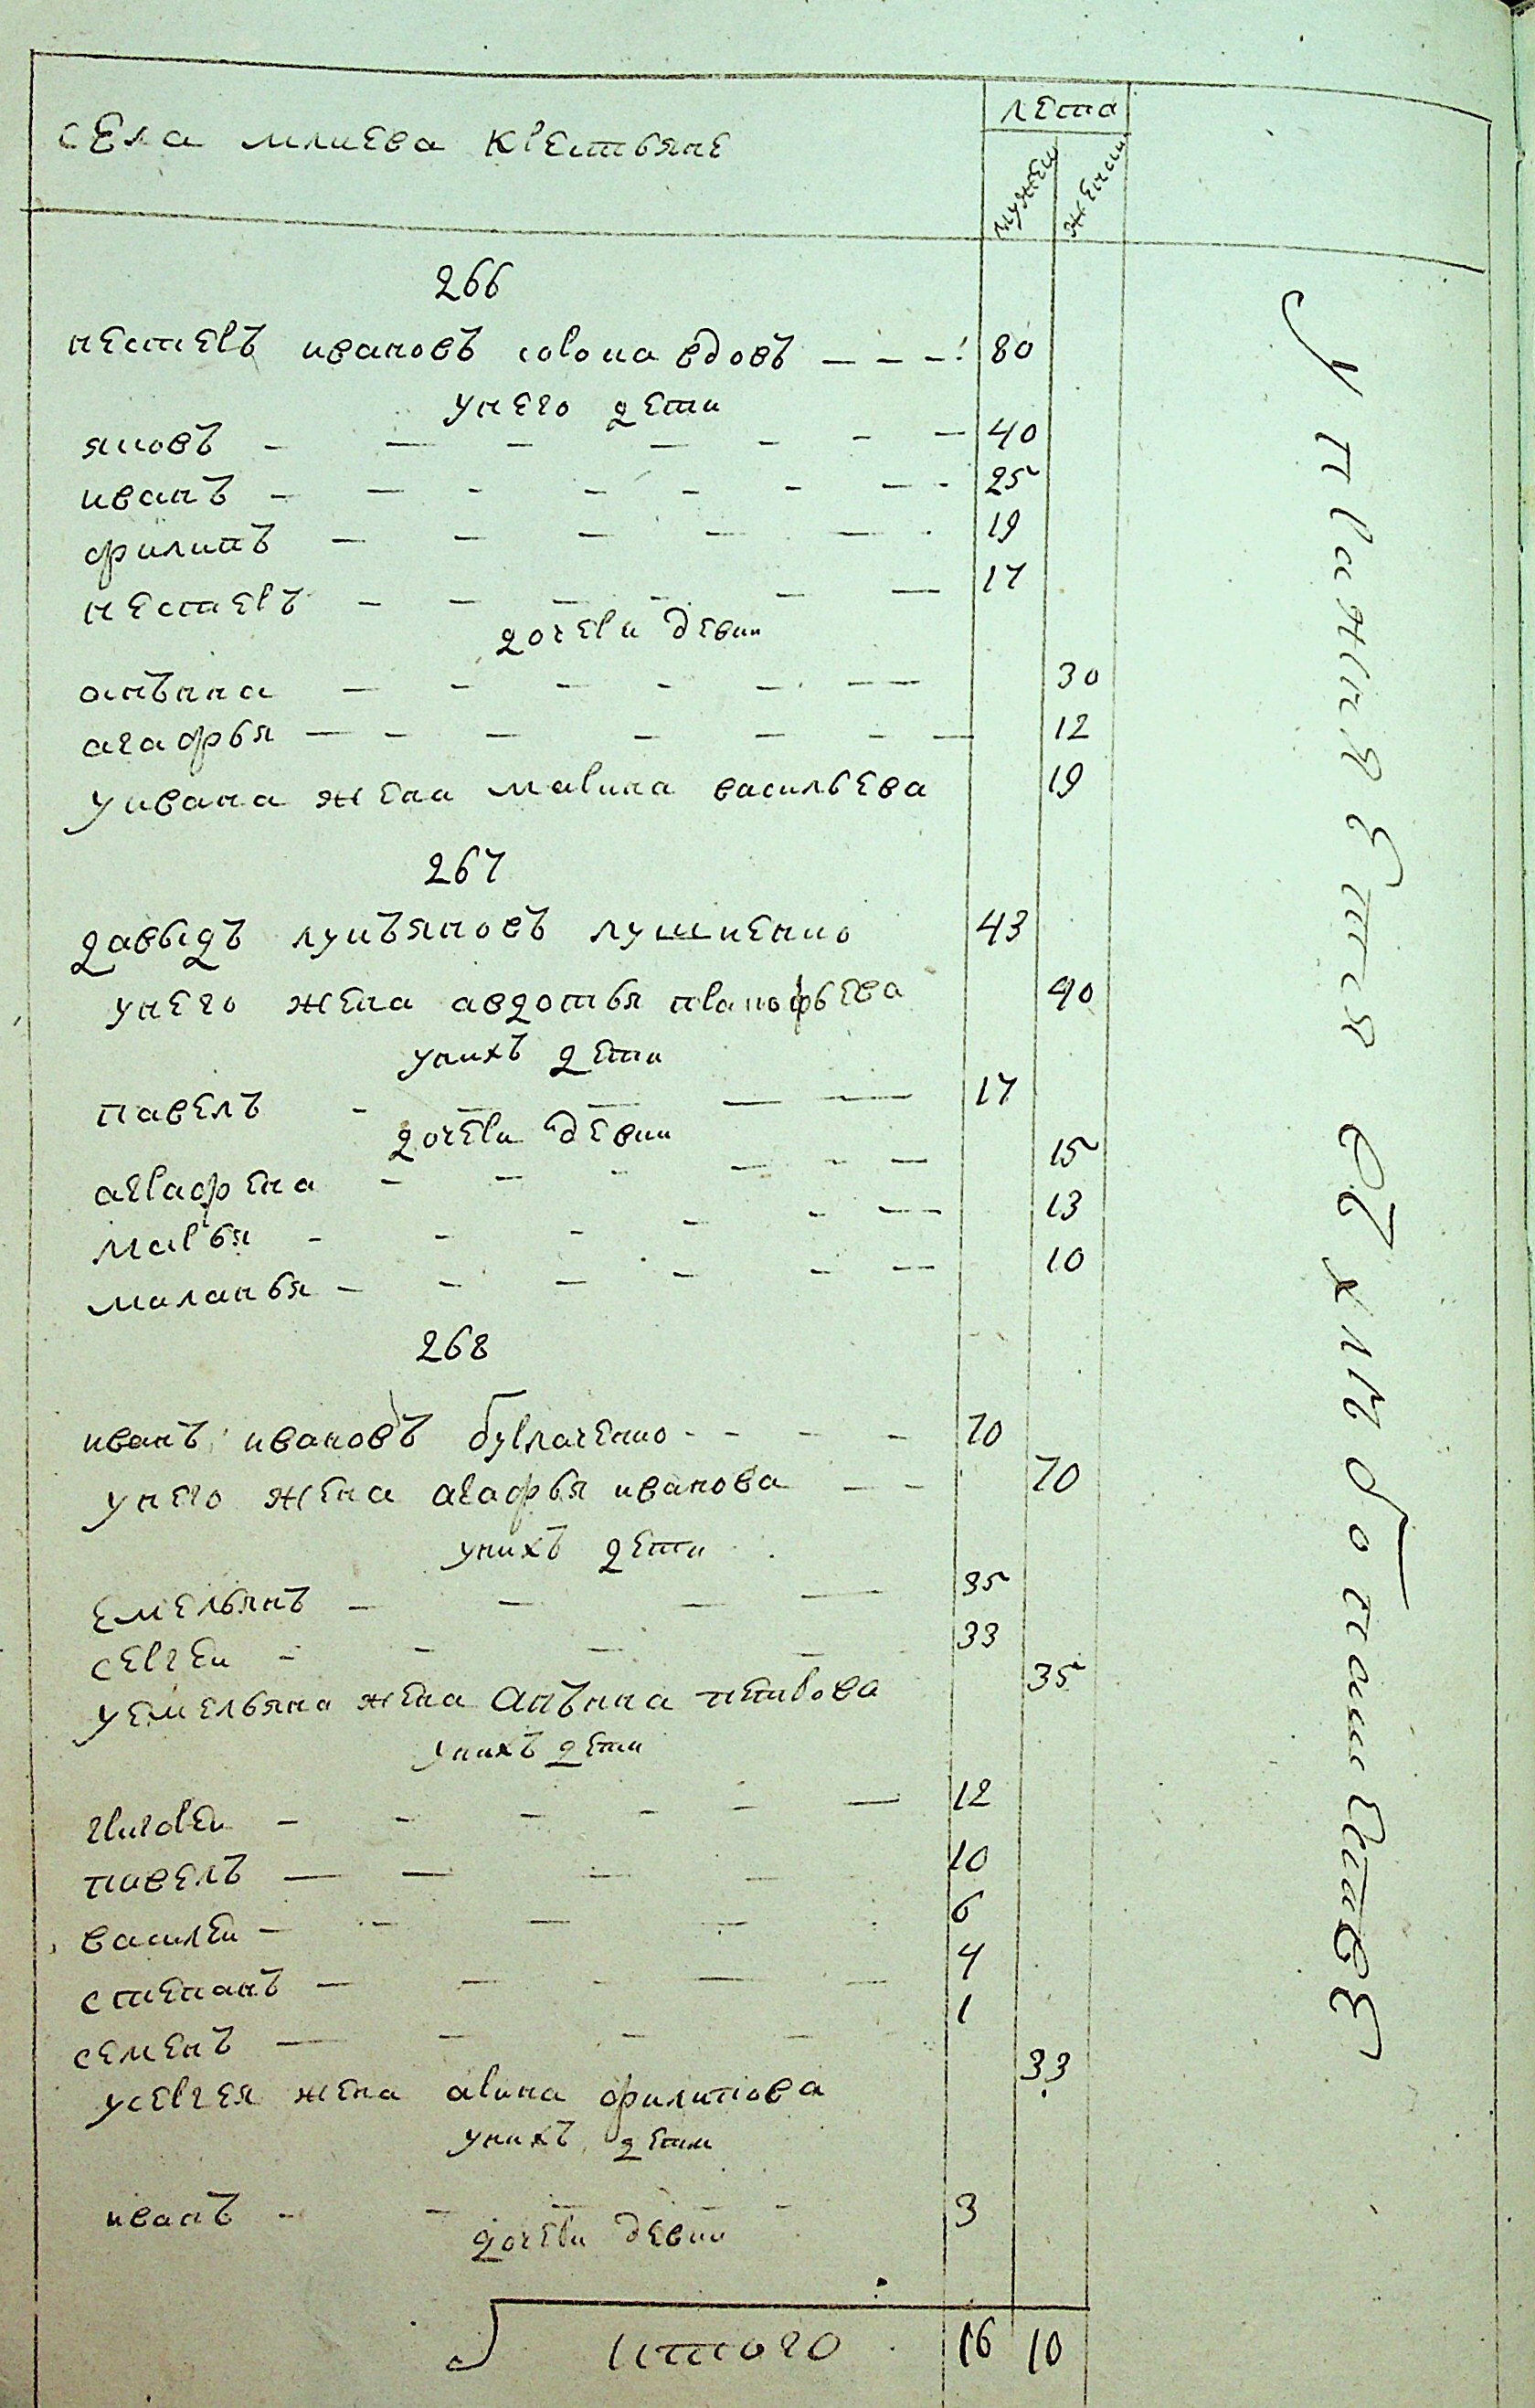 села млиева крестьяне
лета
мужеи
женски
266
нестеръ ивановъ сорока вдовъ 80
унего дети
яковъ 40
иванъ 25
филипъ 19
нестеръ 17
дочери девки
анъна 30
агафья 12
уивана жена марина васильева 19
267
давыдъ лукъяновъ лушненко 43
унего жена авдотья прокофьева 40
унихъ дети
павелъ 17
дочери девки
аграфена 15
марья 13
маланья 10
268
иванъ ивановъ бурлаченко 70
унего жена агафья иванова 70
унихъ дети
емельянъ 35
сергеи 33
уемельяна жена анъна петрова 35
унихъ дети
григореи 12
павелъ 10
василеи 6
степанъ 4
семенъ 1
усергея жена арина филипова 33
унихъ дети
иванъ 3
дочери девки
итого 16 10
упражняется вхлибопашестве